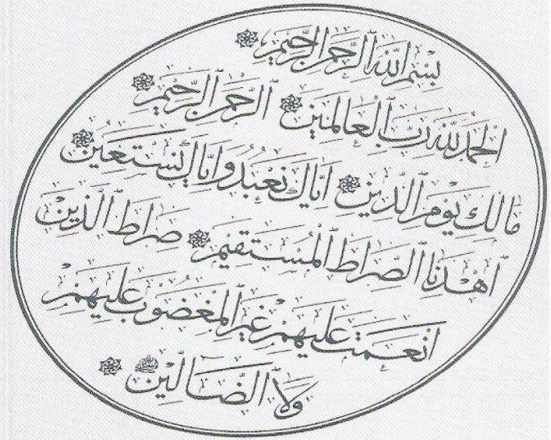 بسم الله الرحمن الرحيم ۞
الحمد لله رب العالمين ۞ الرحمن الرحيم ۞
مالك يوم الدين ۞ اياك نعبد واياك نستعين ۞
اهدنا الصراط المستقيم ۞ صراط الذين
انعمت عليهم غير المغضوب عليهم
ولا الضالين ۞